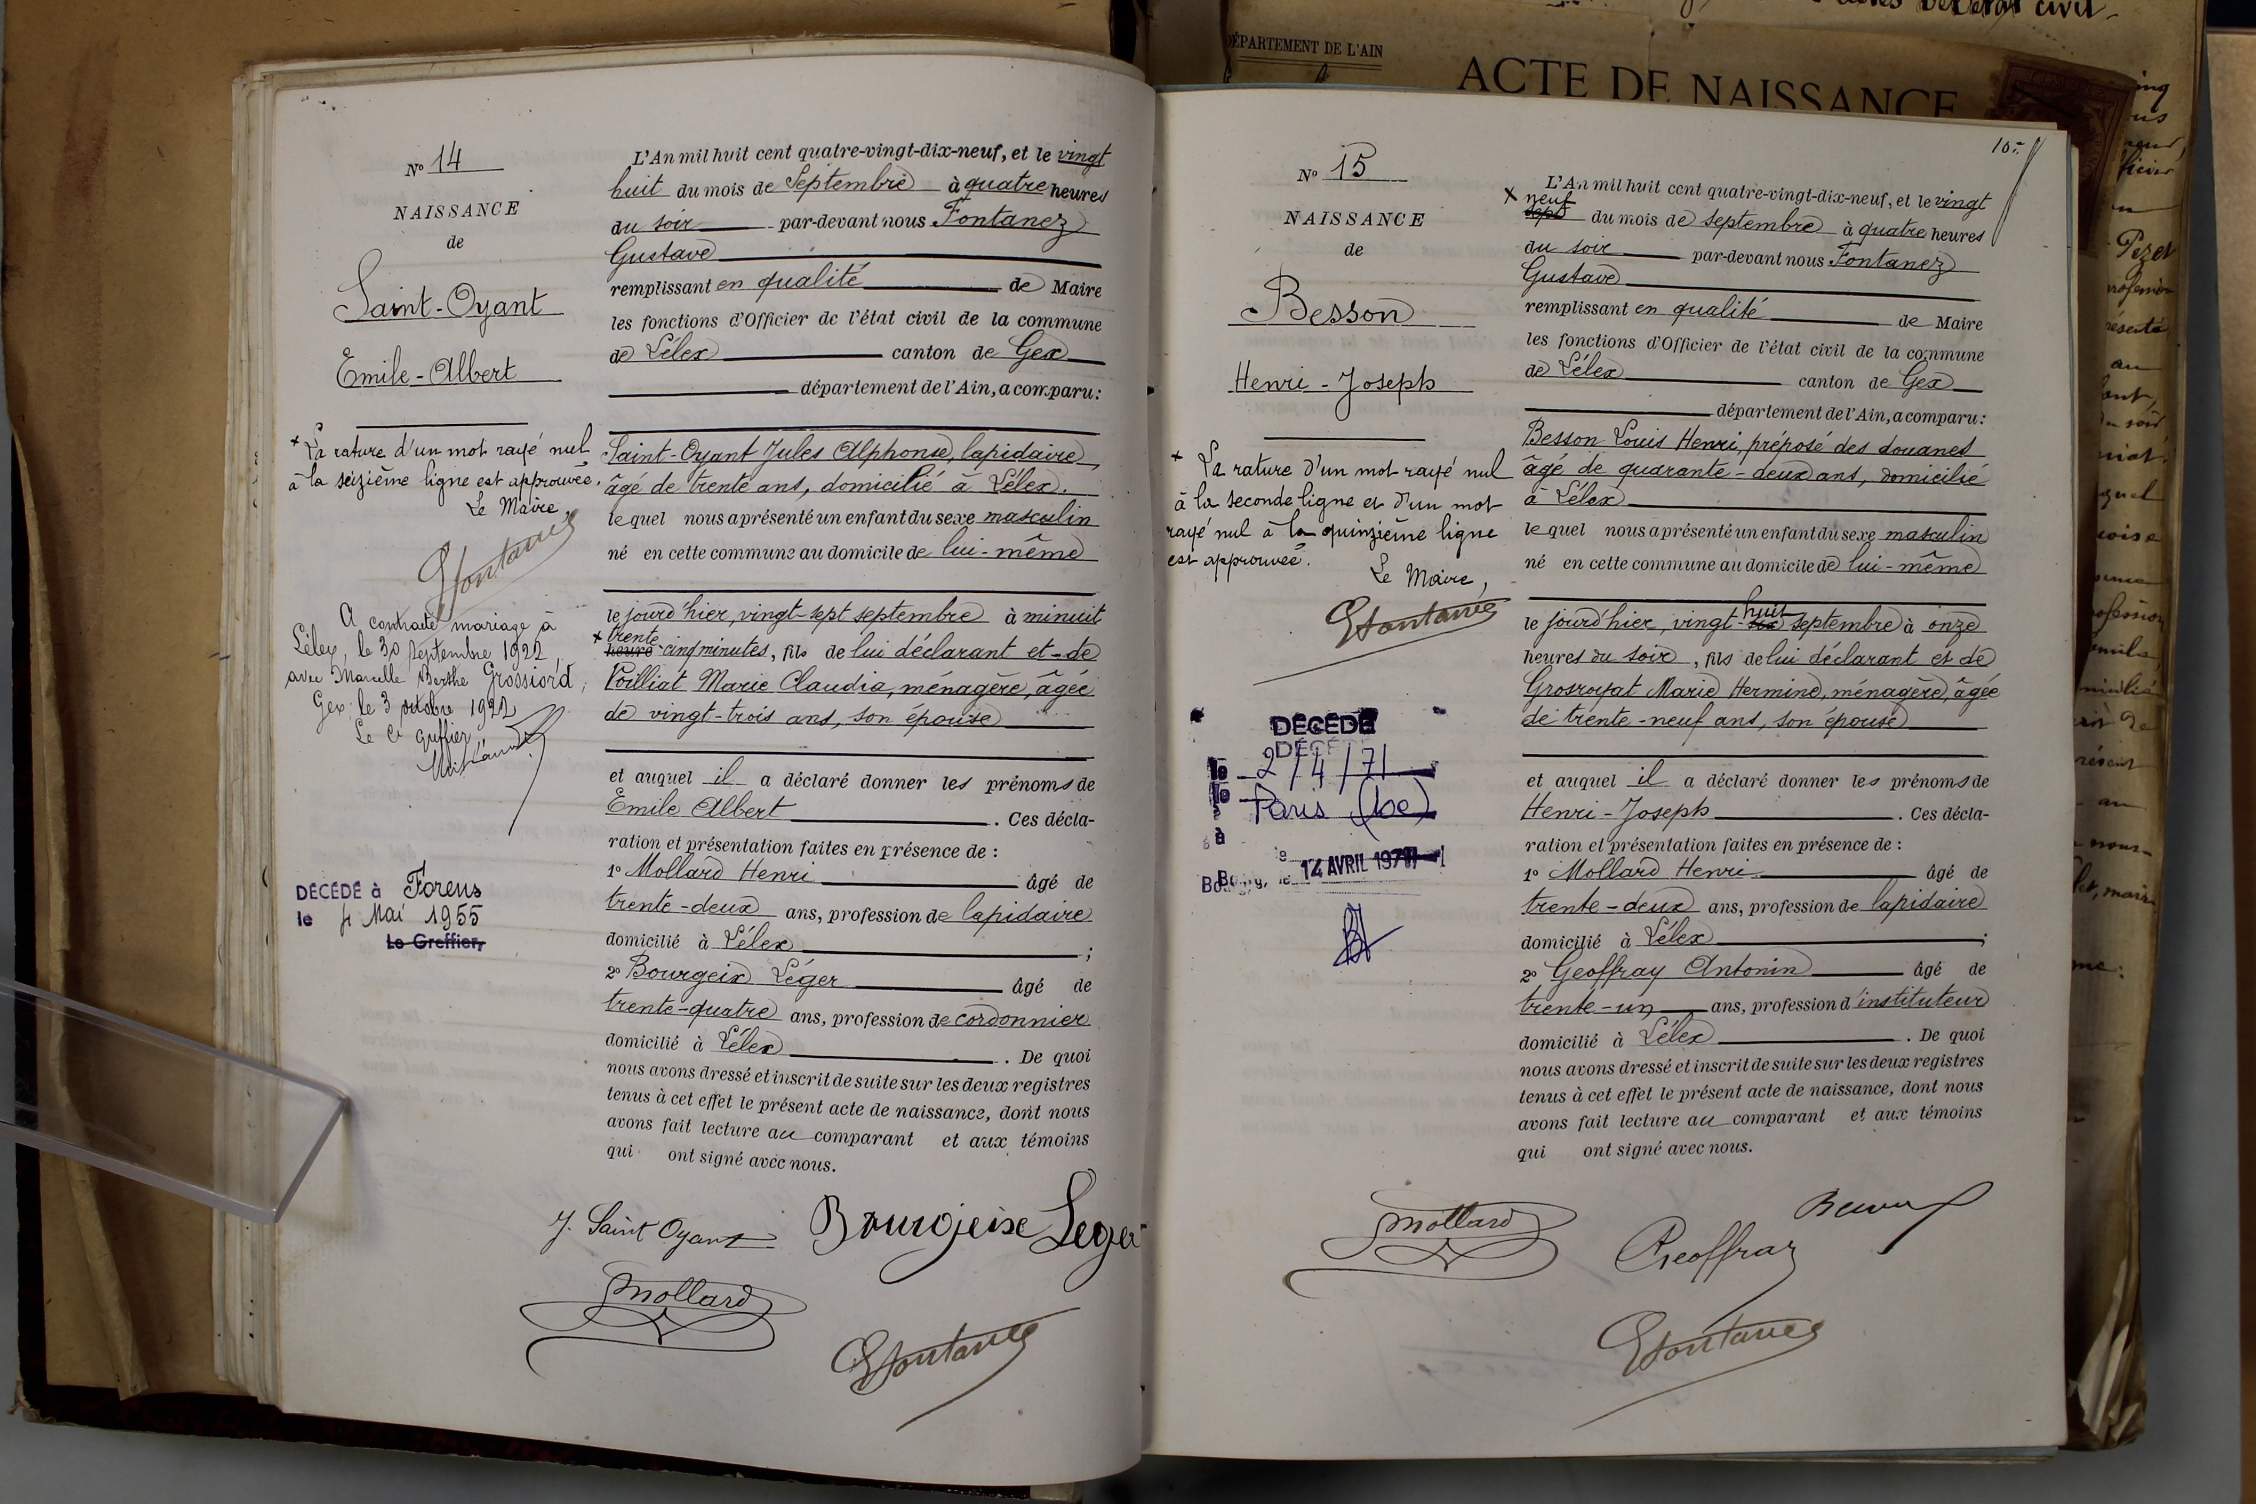 N° 14
NAISSANCE
de
Saint-Oyant
Emile-Albert
+ La rature d'un mot rayé nul
à la seizième ligne est approuvée.
Le Maire,
GFontanez
A contracté mariage à
Lélex, le 30 septembre 1922
avec Marcelle Berthe Grossiord,
Gex, le 3 octobre 1922
Le Cis greffier,
DÉCÉDÉ à Forens
le 4 Mai 1955
Le Greffier,
L'An mil huit cent quatre-vingt-dix-neuf, et le vingt
huit du mois de Septembre à quatre heures
du soir par-devant nous Fontanez
Gustave
remplissant en qualité de Maire
les fonctions d'Officier de l'état civil de la commune
de Lélex canton de Gex
département de l'Ain, a comparu:
Saint-Oyant Jules Alphonse, lapidaire,
âgé de trente ans, domicilié à Lélex.
lequel nous a présenté un enfant du sexe masculin
né en cette commune au domicile de lui-même
le jourd'hier, vingt-sept septembre à minuit
+ trente
heure cinq minutes, fils de lui déclarant et de
Poilliat Marie Claudia, ménagère, âgée
de vingt-trois ans, son épouse
et auquel il a déclaré donner les prénoms de
Emile Albert. Ces décla-
ration et présentation faites en présence de :
1° Mollard Henri âgé de
trente-deux ans, profession de lapidaire
domicilié à Lélex ;
2° Bourgeix Léger âgé de
trente-quatre ans, profession de cordonnier
domicilié à Lélex. De quoi
nous avons dressé et inscrit de suite sur les deux registres
tenus à cet effet le présent acte de naissance, dont nous
avons fait lecture au comparant et aux témoins
qui ont signé avec nous.
J. Saint Oyant Bourgeixe Leger
Mollard
GFontanez
DÉPARTEMENT DE L'AIN
ACTE DE NAISSANCE
10
N° 15
NAISSANCE
de
Besson
Henri-Joseph
+ La rature d'un mot rayé nul
à la seconde ligne et d'un mot
rayé nul à la quinzième ligne
est approuvée.
Le Maire,
GFontanez
DÉCÉDÉ
DÉCÉDÉ
le 2/4/71
le Paris (6e)
à
Bourg, le 14 AVRIL 1971
L'An mil huit cent quatre-vingt-dix-neuf, et le vingt
+ neuf
sept du mois de septembre à quatre heures
du soir par-devant nous Fontanez
Gustave
remplissant en qualité de Maire
les fonctions d'Officier de l'état civil de la commune
de Lélex canton de Gex
département de l'Ain, a comparu:
Besson Louis Henri, préposé des douanes
âgé de quarante-deux ans, domicilié
à Lélex
lequel nous a présenté un enfant du sexe masculin
né en cette commune au domicile de lui-même
huit
le jourd'hier, vingt-six septembre à onze
heures du soir, fils de lui déclarant et de
Grosroyat Marie Hermine, ménagère, âgée
de trente-neuf ans, son épouse
et auquel il a déclaré donner les prénoms de
Henri-Joseph. Ces décla-
ration et présentation faites en présence de :
1° Mollard Henri âgé de
trente-deux ans, profession de lapidaire
domicilié à Lélex ;
2° Geoffray Antonin âgé de
trente-un ans, profession d'instituteur
domicilié à Lélex. De quoi
nous avons dressé et inscrit de suite sur les deux registres
tenus à cet effet le présent acte de naissance, dont nous
avons fait lecture au comparant et aux témoins
qui ont signé avec nous.
Mollard Besson
Geoffray
GFontanez